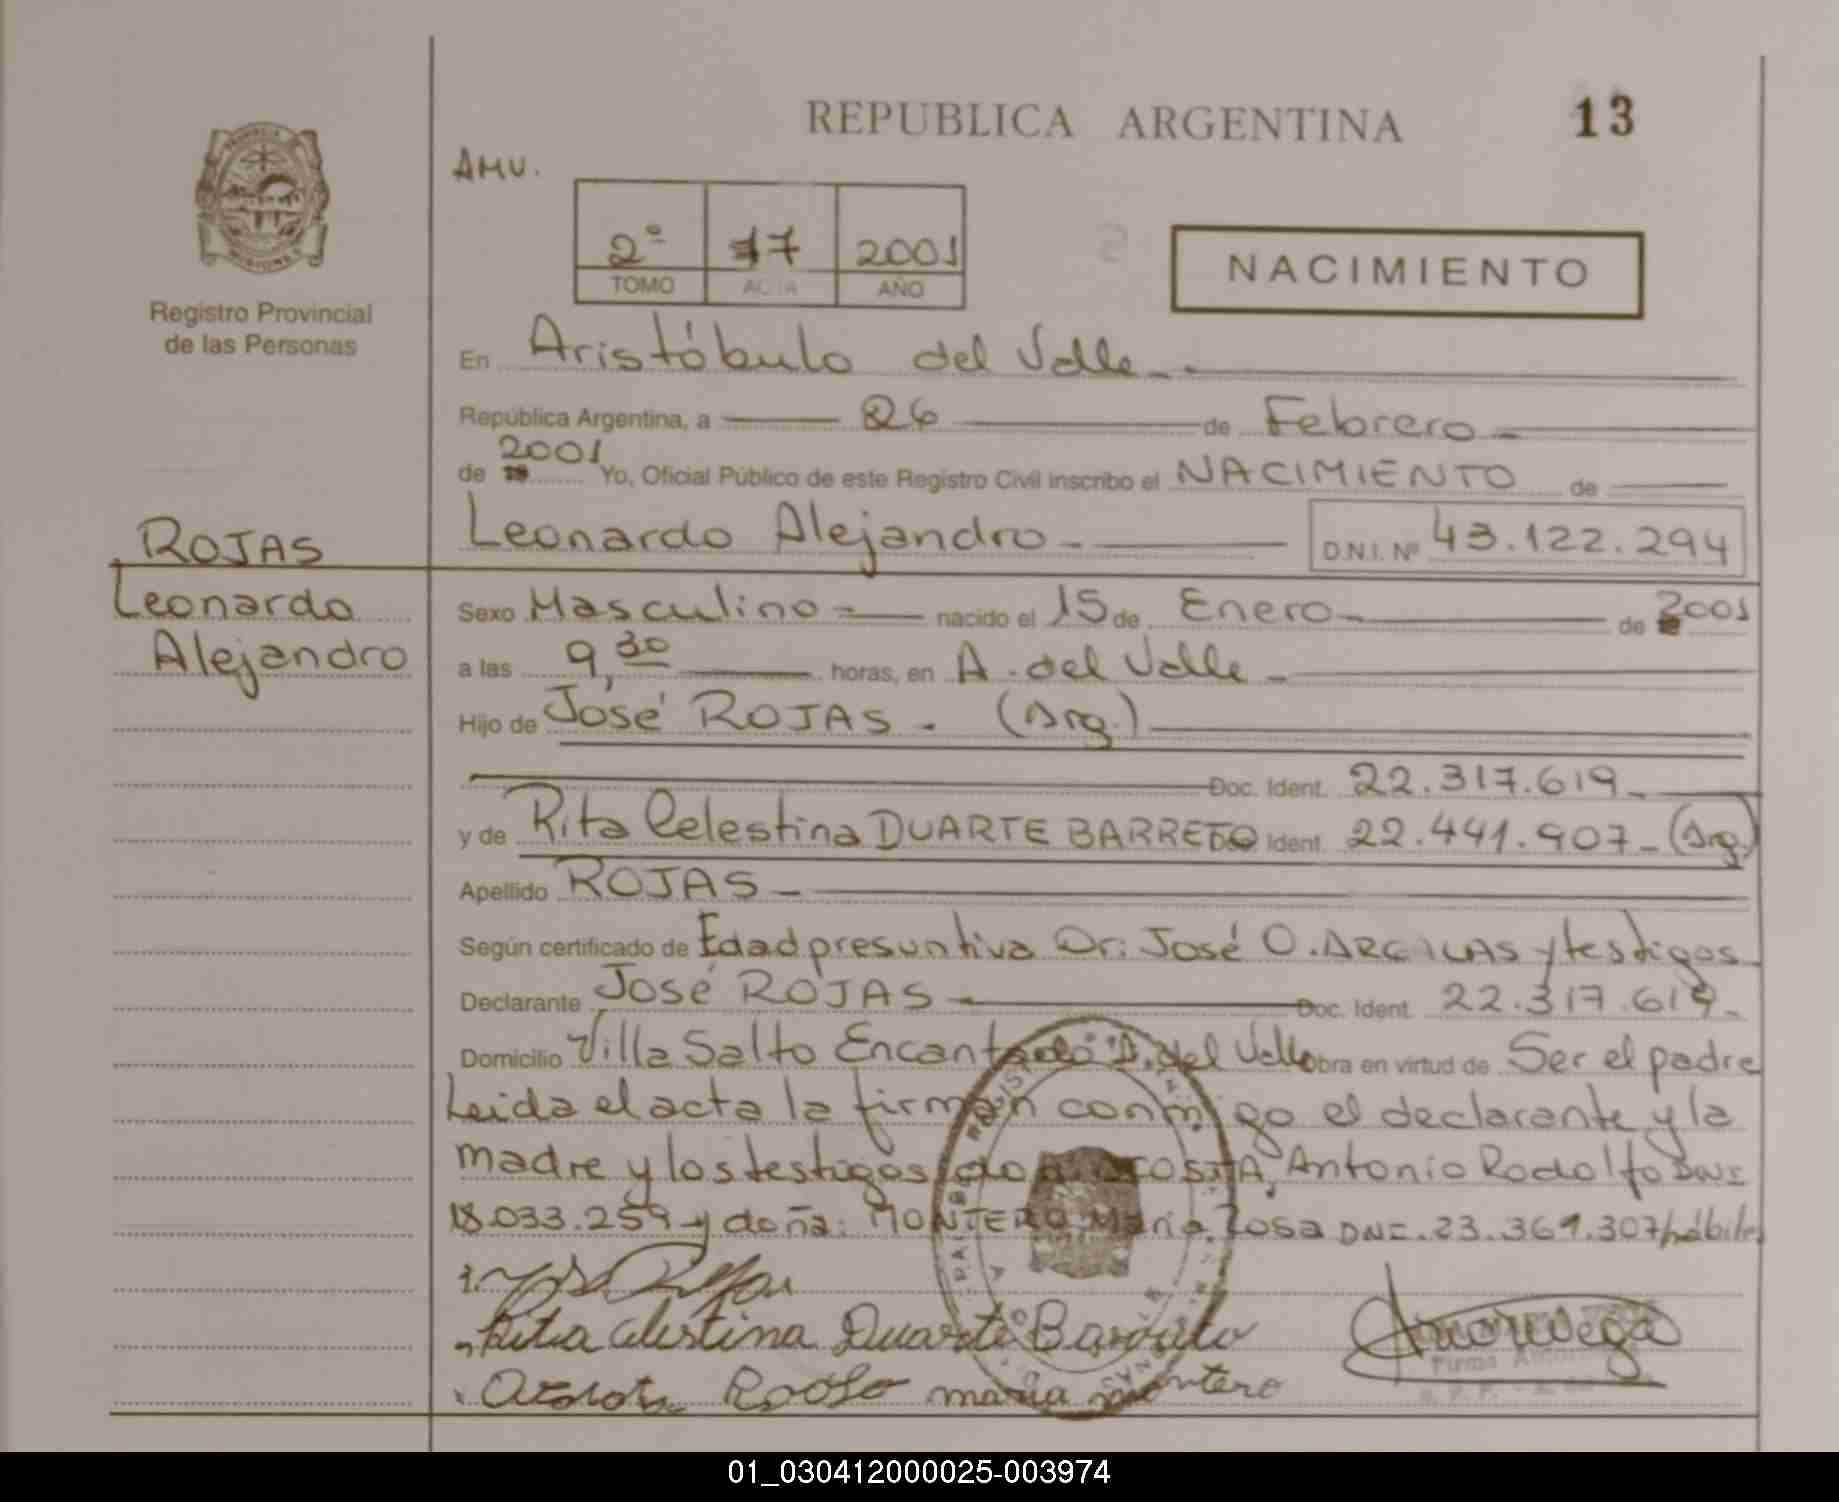 REPUBLICA ARGENTINA 13
AMV.
2º 17 2001
TOMO ACTA AÑO
NACIMIENTO
Registro Provincial
de las Personas
En Aristóbulo del Valle.-
República Argentina, a 26 de Febrero-
de 2001 Yo, Oficial Público de este Registro Civil inscribo el NACIMIENTO de
Leonardo Alejandro- D.N.I. Nº 43.122.294
ROJAS
Leonardo
Alejandro
Sexo Masculino- nacido el 15 de Enero- de 2001
a las 9,30 horas, en A. del Valle-
Hijo de José ROJAS. (Arg.)
Doc. Ident. 22.317.619-
y de Rita Celestina DUARTE BARRETO Ident. 22.441.907-(Arg.)
Apellido ROJAS-
Según certificado de Edad presuntiva Dr: José O. y testigos
Declarante José ROJAS- Doc. Ident. 22.317.619-
Domicilio Villa Salto Encantado A. del Valle obra en virtud de Ser el padre
Leida el acta la firman conmigo el declarante y la
madre y los testigos don ACOSTA, Antonio Rodolfo DNI
18.033.259 y doña: MONTERO María Rosa DNI.23.369.307/hábiles
Rita Celestina Duarte Barreto
maria montero
MISIONES
01_030412000025-003974